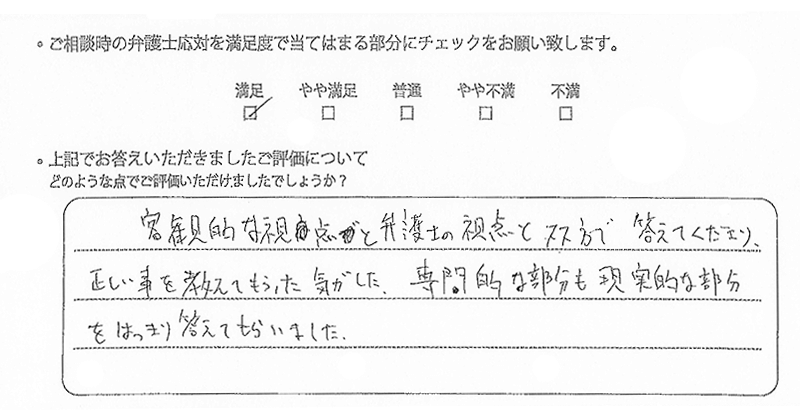 。ご相談時の弁護士応対を満足度で当てはまる部分にチェックをお願い致します。
満足 やや満足 普通 やや不満 不満
。上記でお答えいただきましたご評価について
どのような点でご評価いただけましたでしょうか?
客観的な視点と弁護士の視点と 双方で 答えてくださり、
正しい事を教えてもらった気がした。専門的な部分も現実的な部分
をはっきり答えてもらいました。